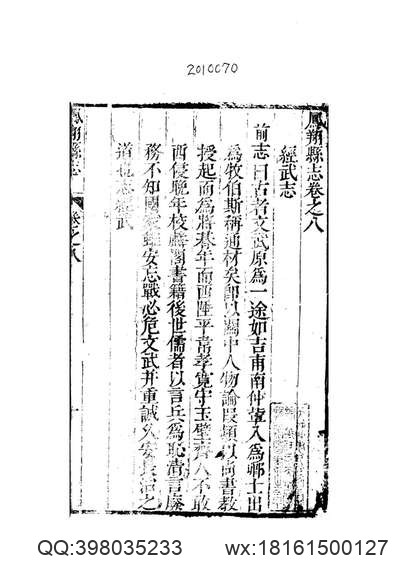 2010070
鳳翔縣志卷之八
經武志
前志曰古者文武原爲一途如吉甫南仲輩入爲卿士出
爲牧伯斯稱通材矣卽以關中人物論段熲以尚書教
授起而爲將朞年而西陲平韋孝寬守玉壁齊人不敢
西侵晚年校麟閣書籍後世儒者以言兵爲恥清言廢
務不知國家雖安忘戰必危文武并重誠久安長治之
道也志經武
鳳翔縣志
卷之八
QQ:398035233
wx:18161500127